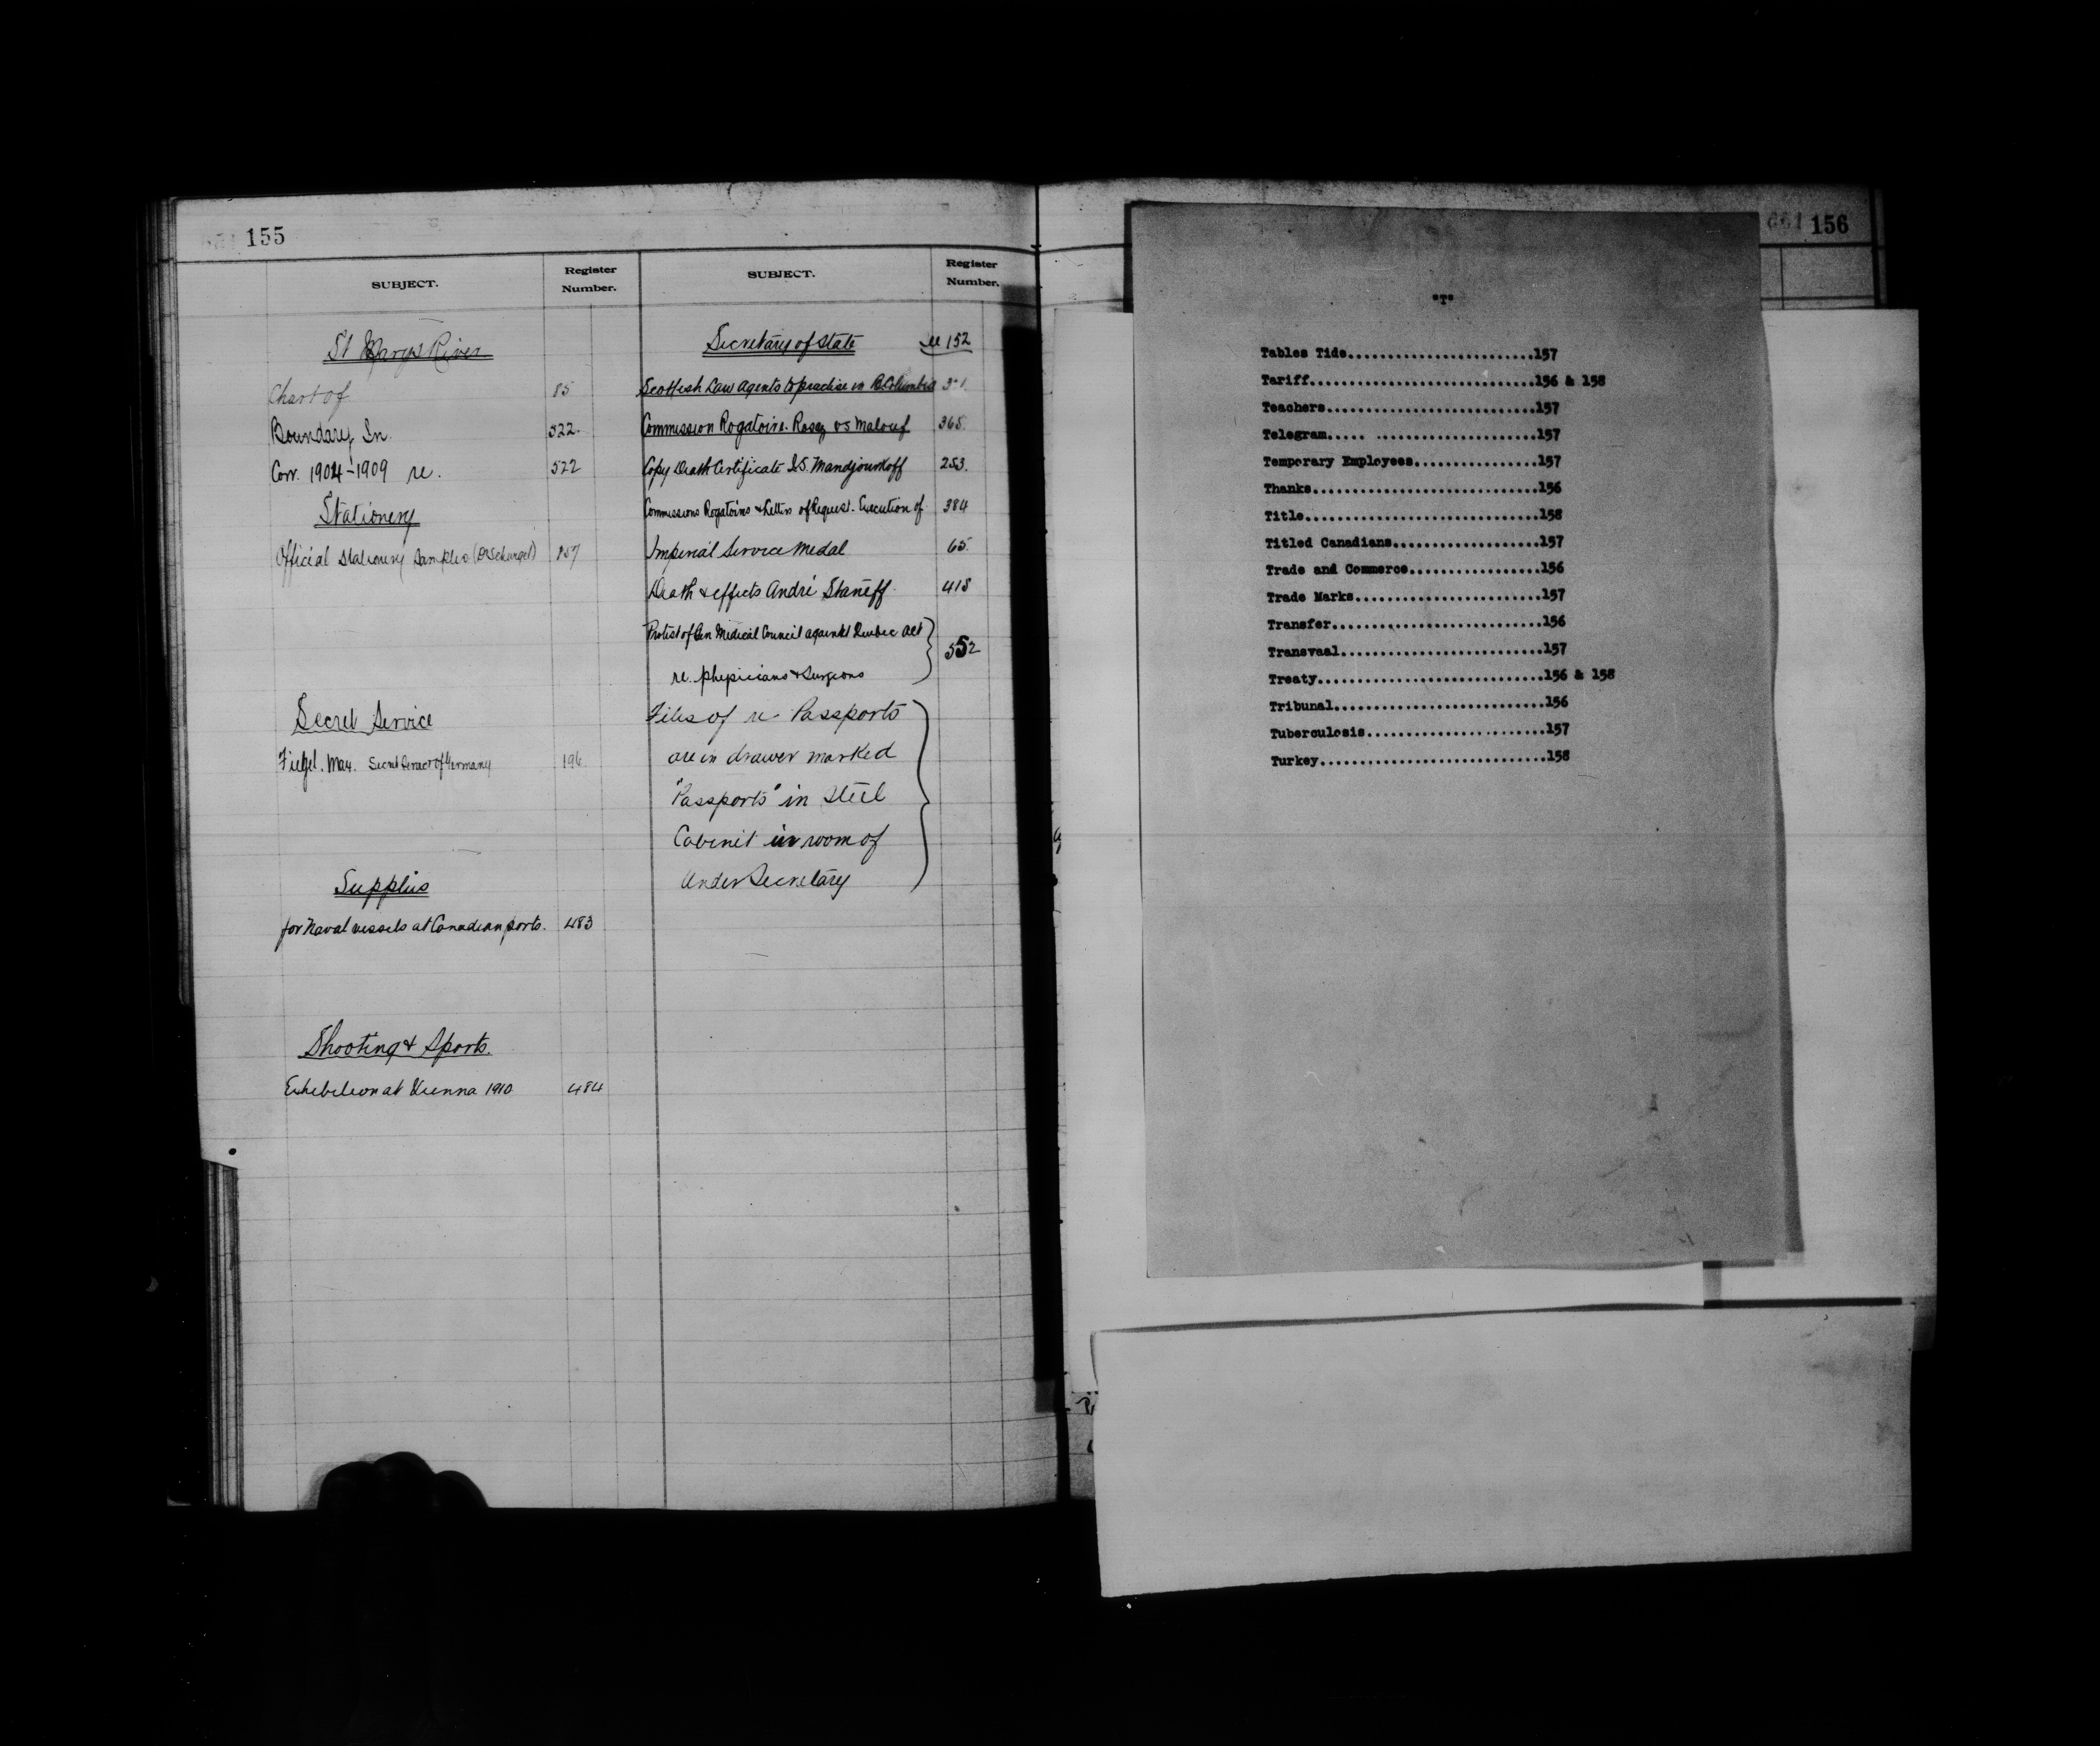 155
SUBJECT.
Register Number.
St Marys River
Chart of 85
Boundary In. 522.
Corr. 1904-1909 re. 522
Stationery
Official Stationery Samples 157
Secret Service
Max. Secret Service of Germany 196
Supplies
for Naval vessels at Canadian ports. 483
Shooting & Sports.
Exhibition at Vienna 1910 484
SUBJECT.
Register Number.
Secretary of State 152
Scottish Law Agents to practise in B. Columbia
Commission Rogatoire. Rosey vs Malouf 365.
Copy Death Certificate I.S. Mandjourkoff 253.
Commissions Rogatoires & Letters of Request. Execution of 384
Imperial Service Medal 65.
Death & effects André Staneff 418
Protest of Gen Medical Council against Quebec Act
re. physicians & Surgeons 552
Files of re Passports
are in drawer marked
"Passports" in Steel
Cabinet in room of
Under Secretary
156
"T"
Tables Tide.......................157
Tariff............................156 & 158
Teachers..........................157
Telegram..... ....................157
Temporary Employees...............157
Thanks............................156
Title.............................158
Titled Canadians..................157
Trade and Commerce................156
Trade Marks.......................157
Transfer..........................156
Transvaal.........................157
Treaty............................156 & 158
Tribunal..........................156
Tuberculosis......................157
Turkey............................158